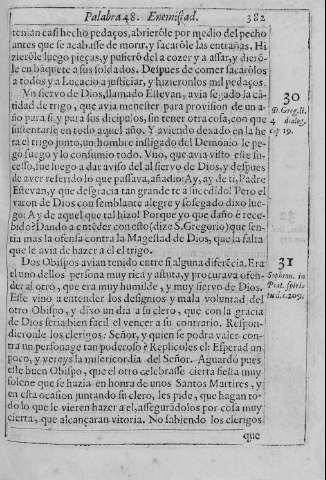 Palabra 48. Enemistad. 382
tenian casi hecho pedaços, abrierõle por medio del pecho
antes que se acabasse de morir, y sacarõle las entrañas. Hi
zierõle luego pieças, y pusierõ del a cozer y a assar, y dierõ-
le en bãquete a sus soldados. Despues de comer sacarõlos
a todos y a Lucacio a justiciar, y hizieronlos mil pedaços.
Vn siervo de Dios, llamado Estevan, avia segado la can
tidad de trigo, que avia menester para provision de un a-
ño para si, y para sus dicipulos, sin tener otra cosa, con que
sustentarse en todo aquel año. Y aviendo dexado en la he
ra el trigo junto, un hombre instigado del Demonio le pe
gó fuego y lo consumio todo. Vno, que avia visto este su-
cesso, fue luego a dar aviso del al siervo de Dios, y despues
de aver referido lo que passava, añadio: Ay, ay de ti, Padre
Estevan, y que desgracia tan grande te a sucedido! Pero el
varon de Dios con semblante alegre y sosegado dixo lue-
go: Ay de aquel que tal hizo! Porque yo que daño é rece-
bido? Dando a entẽder con esto (dize S. Gregorio) que sen-
tia mas la ofensa contra la Magestad de Dios, que la falta
que le avia de hazer a el el trigo.
30
D. Greg. li.
4 dialog.
cap 19.
Dos Obispos avian tenido entre sí alguna diferẽcia. Era
el uno dellos persona muy rica y astuta, y procurava ofen-
der al otro, que era muy humilde, y muy siervo de Dios.
Este vino a entender los designios y mala voluntad del
otro Obispo, y dixo un dia a su clero, que con la gracia
de Dios seria bien facil el vencer a su contrario. Respon-
dieronle los clerigos: Señor, y quien le podra valer con-
tra un personage tan poderoso? Replicoles el: Esperad un
poco, y vereys la misericordia del Señor. Aguardó pues
este buen Obispo, que el otro celebrasse cierta fiesta muy
solene que se hazia en honra de unos Santos Martires, y
en esta ocasion juntando su clero, les pide, que hagan to-
do lo que le vieren hazer a el, assegurãdolos por cosa muy
cierta, que alcançaran vitoria. No sabiendo los clerigos
31
Sophron. in
Prat. spirit
tual. c. 209.
que